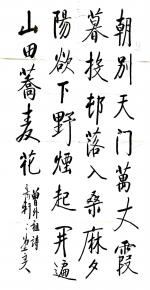 朝别天门萬丈霞
暮投邨落入桑麻夕
陽欲下野煙起开遍
山田蕎麦花
曾外祖詩